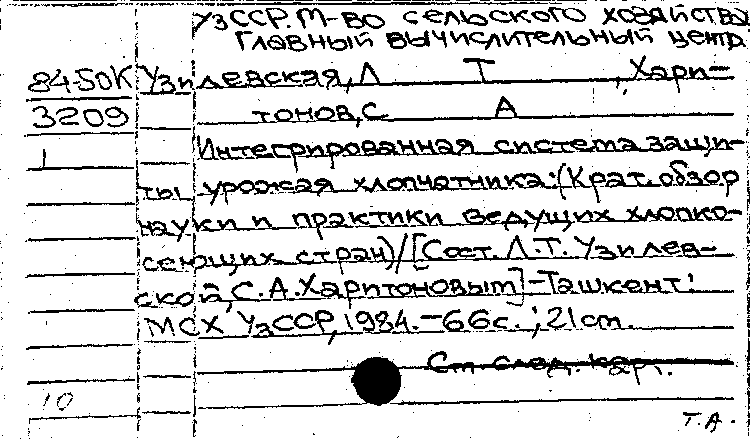 УзССР. М-во сельского хозяйства.
Главный вычислительный центр
84-50К Узилевская, Л Т , Хари-
3209 тонов, С А
1 Интегрированная система защи-
ты урожая хлопчатника: (Крат. обзор
науки и практики ведущих хлопко-
сеющих стран)/[Сост. Л.Т. Узилев-
ской, С.А. Харитоновым]-Ташкент:
МСХ УзССР, 1984.-66с.; 21 cm.
См след. карт.
10
Т.А.